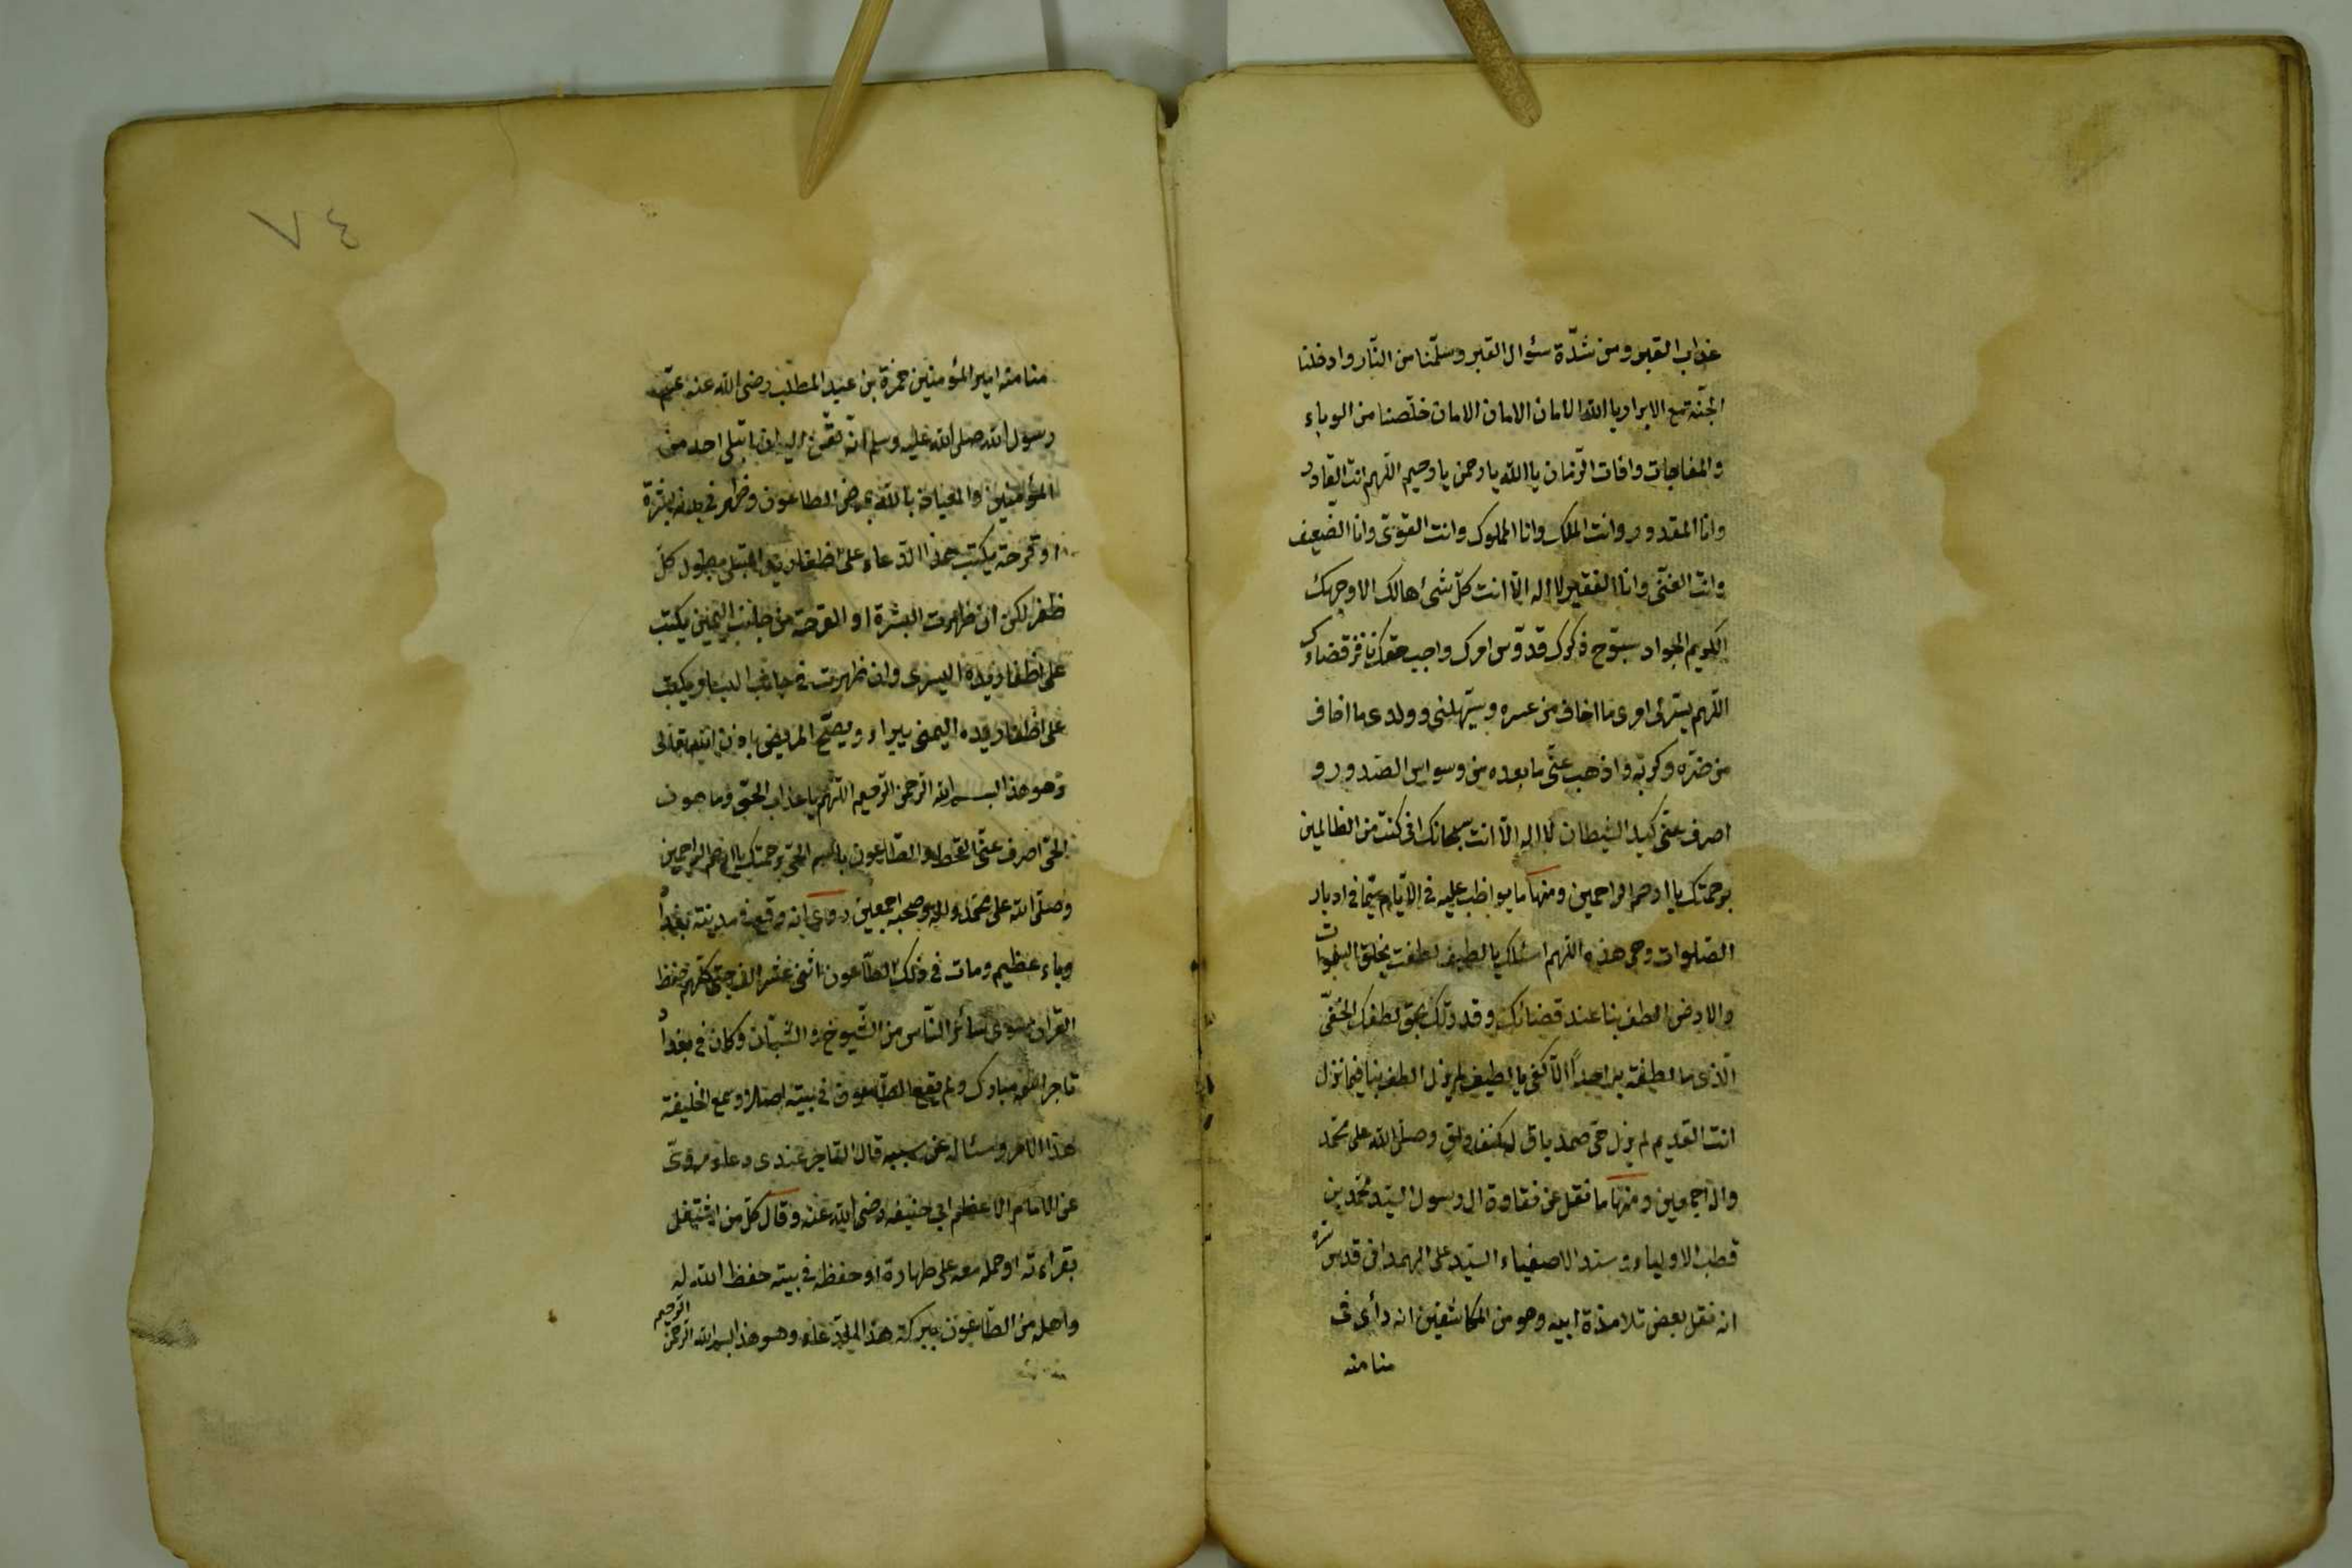 عذاب القبر ومن شدّة سئوال القبر وسلّمنا من النّار وادخلنا
الجنّة مع الابرار يا اللّه الامان الامان الامان خلّصنا من الوباء
والمفاجات وافات الزّمان يا اللّه يا رحمن يا رحيم اللّهم انت القادر
وانا المقدور وانت الملك وانا المملوك وانت القوىّ وانا الضّعيف
وانت الغنىّ وانا الفقير لا اله الّا انت كلّ شىء هالك الا وجهك
الكريم الجواد سبّوح ذكرك قدّوس امرك واجب حقك نافز قضاءك
اللّهم يسّر لى امرى ما اخاف من عسره وسهّل لى وولدى ما اخاف
من ضرّه وكربة واذهب عنّى ما بعده من وسواس الصّدور و
اصرف عنّى كيد الشيطان لا اله الّا انت سبحانك انى كنت من الظالمين
برحمتك يا ارحم الراحمين ومنها ما يواظب عليه فى الايّام سيّما فى ادبار
الصّلوات وهى هذه اللّهم اسئلك يا لطيف لطفت بخلق السّموات
والارض الطف بنا عند قضائك وقدرتك بحق لطفك الخفىّ
الّذى ما لطيفة به احداً الّا كفى يا لطيف لم يزل الطف بنا فيما نزل
انت القديم لم يزل حىّ صمد باق له كنف واق وصلى اللّه على محمّد
واله اجمعين ومنها ما نقل عن نقاوة ال رسول السيّد محمّد بن
قطب الاولياء وسند الاصفياء السيّد على الهمدانى قدس سره
انه نقل بعض تلامذة ابيه وهو من المكاشفين انه رأى فى
منامنه
٧٤
منامنه امير المؤمنين حمزة بن عبد المطّلب رضى اللّه عنه عمّ
رسول اللّه صلى اللّه عليه وسلم انّه ان ابتلى احد من
المؤمنين والعياذ باللّه بمرض الطاعون وظهر فى بدنه بثرة
او قرحة يكتب هذا الدّعاء على اظفار يد المبتلى بطول كلّ
ظفر لكن ان ظهرت البثرة او القرحة من جانب اليمنى يكتب
على اظفار يده اليسرى وان ظهرت فى جانب اليسار يكتب
على اظفار يده اليمنى يبراء ويصحّ المريض باذن اللّه تعالى
وهو هذا بسم اللّه الرّحمن الرّحيم اللّهم يا عذاب الحىّ وما هو من
الحىّ اصرف عنّى القحط والطّاعون باسم الحىّ برحمتك يا ارحم الراحمين
وصلّى اللّه على محمّد واله وصحبه اجمعين روى انه وقع فى مدينة بغداد
وباء عظيم ومات فى ذلك الطّاعون اثنى عشر الف صبى كلّهم حفظ
القرآن سوى سائر النّاس من الشّيوخ و الشّبّان وكان فى بغداد
تاجر مبارك ولم يقع الطّاعون فى بيته اصلا وسمع الخليفة
هذا الامر وسئاله عن سببه قال التاجر عندى دعاء مروىّ
عن الامام الاعظم ابى حنيفه رضى اللّه عنه وقال كلّ من اشتغل
بقراءته او حمله معه على طهارة او حفظه فى بيته حفظ اللّه له
واهله من الطّاعون ببركة هذا الدّعاء وهو هذا بسم اللّه الرّحمن الرّحيم